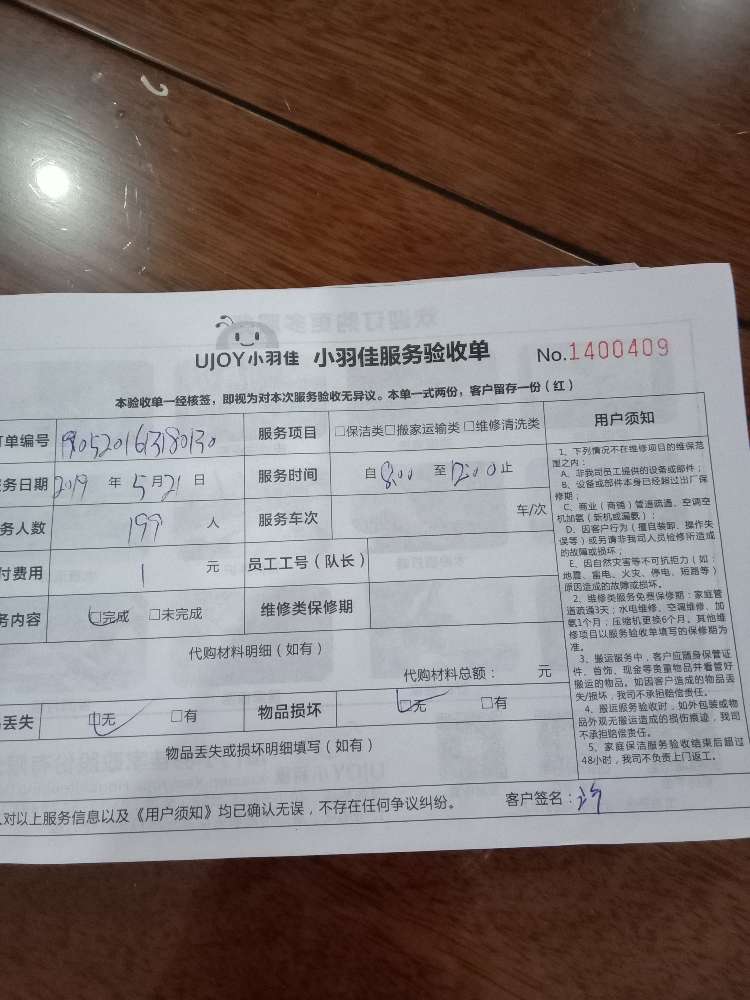 UJOY小羽佳 小羽佳服务验收单 No.1400409
本验收单一经核签，即视为对本次服务验收无异议。本单一式两份，客户留存一份（红）
单编号 服务项目 □保洁类□搬家运输类□维修清洗类 用户须知
务日期 2019 年 5 月 21 日 服务时间 自 8:00 至 12:00 止
务人数 199 人 服务车次 车/次
付费用 1 元 员工工号（队长）
务内容 □完成 □未完成 维修类保修期
代购材料明细（如有）
代购材料总额： 元
丢失 □无 □有 物品损坏 □无 □有
物品丢失或损坏明细填写（如有）
对以上服务信息以及《用户须知》均已确认无误，不存在任何争议纠纷。 客户签名：
1、下列情况不在维修项目的维保范
围之内：
A、非我司员工提供的设备或部件；
B、设备或部件本身已经超过出厂保
修期；
C、商业（商铺）管道疏通、空调空
机加氨（新机或漏氨）；
D、因客户行为（擅自装卸、操作失
误等）或另请非我司人员检修所造成
的故障或损坏；
E、因自然灾害等不可抗拒力（如：
地震、雷电、火灾、停电、短路等）
原因造成的故障或损坏。
2、维修类服务免费保修期：家庭管
道疏通3天；水电维修、空调维修、加
氨1个月；压缩机更换6个月。其他维
修项目以服务验收单填写的保修期为
准。
3、搬运服务中，客户应随身保管证
件、首饰、现金等贵重物品并看管好
搬运的物品。如因客户造成的物品丢
失/损坏，我司不承担赔偿责任。
4、搬运服务验收时，如外包装或物
品外观无搬运造成的损伤痕迹，我司
不承担赔偿责任。
5、家庭保洁服务验收结束后超过
48小时，我司不负责上门返工。